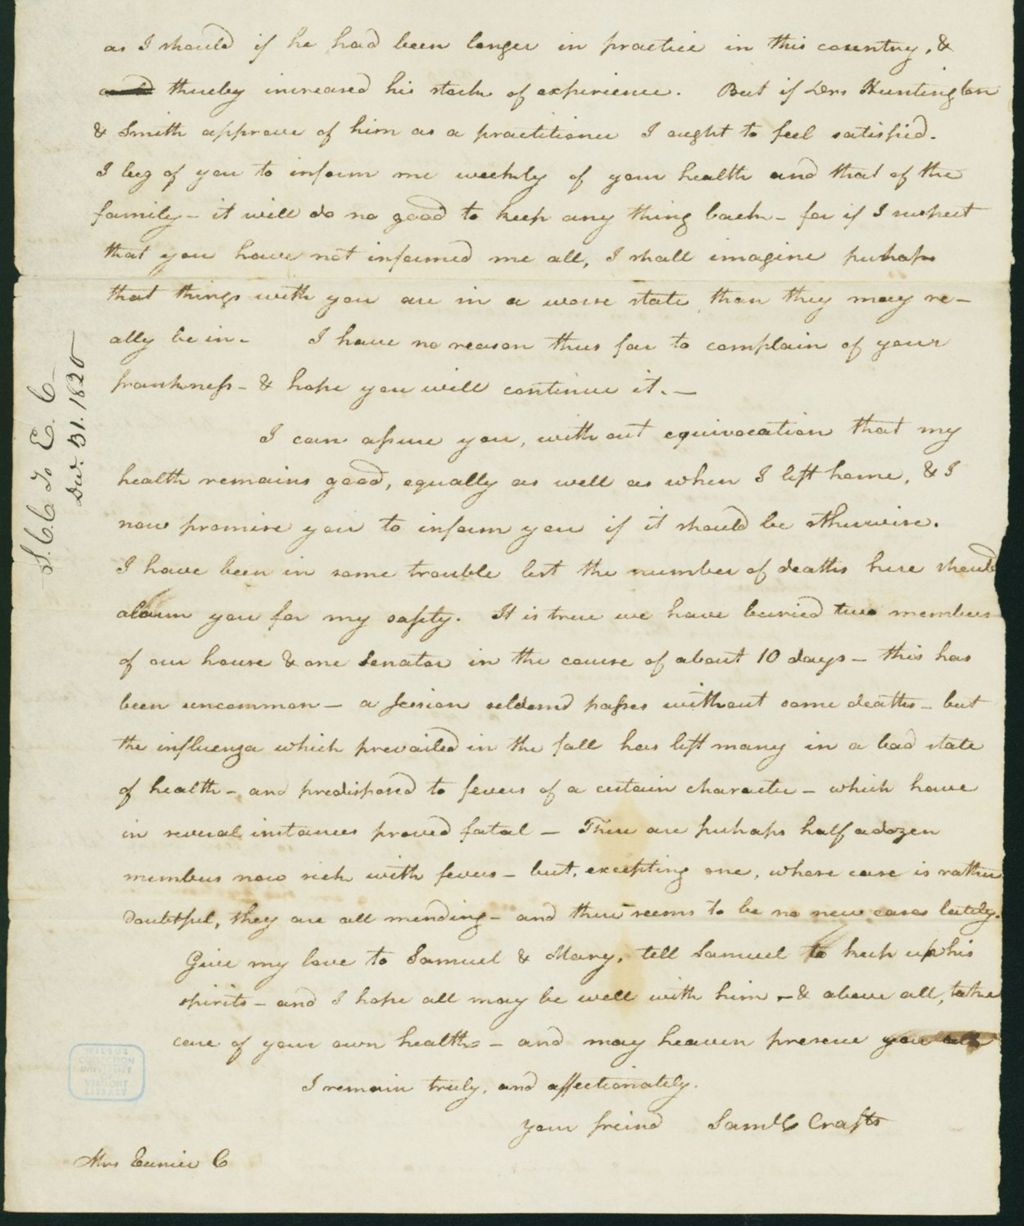 as I should if he had been longer in practice in this country, &
and thereby increased his stock of experience. But if Drs Huntington
& Smith approve of him as a practitioner I ought to feel satisfied.
I beg of you to inform me weekly of your health and that of the
family - it will do no good to keep any thing back - for if I suspect
that you have not informed me all, I shall imagine perhaps
that things with you are in a worse state than they may re-
ally be in. I have no reason thus far to complain of your
frankness - & hope you will continue it. -
I can assure you, without equivocation that my
health remains good, equally as well as when I left home, & I
now promise you to inform you if it should be otherwise.
I have been in some trouble lest the number of deaths here should
alarm you for my safety. It is true we have buried two members
of our house & one Senator in the course of about 10 days - this has
been uncommon - a session seldomd passes without some deaths - but
the influenza which prevailed in the fall has left many in a bad state
of health - and predisposed to fevers of a certain character - which have
in several instances proved fatal - There are perhaps half a dozen
members now sick with fevers - but, excepting one, whose case is rather
doubtful, they are all mending - and there seems to be no new cases lately.
Give my love to Samuel & Mary, tell Samuel to keep up his
spirits - and I hope all may be well with him - & above all, take
care of your own health - and may heaven preserve you all
I remain truly, and affectionately.
your freind Saml C Crafts
Mrs Eunice C
S. C. C to E. C.
Dec. 31. 1820
WILBUR
COLLECTION
UNIVERSITY
OF
VERMONT
LIBRARY